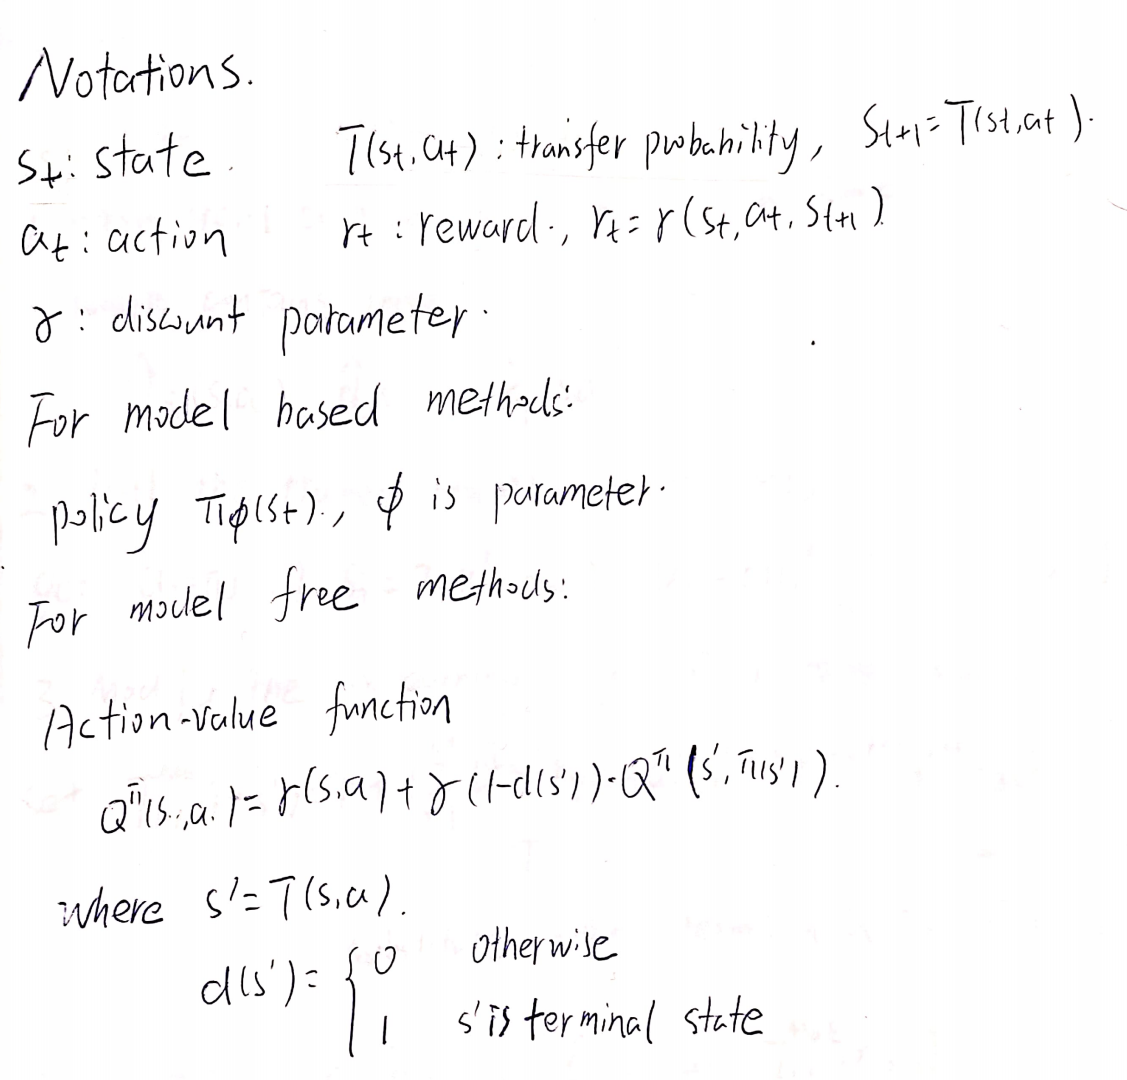 Notations.
St: state. T(st, at) : transfer probability, St+1 = T(st, at).
at : action rt : reward., rt = r(st, at, St+1)
γ : discount parameter.
For model based methods:
policy πϕ(st)., ϕ is parameter.
For model free methods:
Action-value function
Q^π(s., a.) = r(s,a) + γ(1-d(s'))·Q^π(s', π(s')).
where s' = T(s,a).
d(s') = { 0 otherwise
1 s' is terminal state